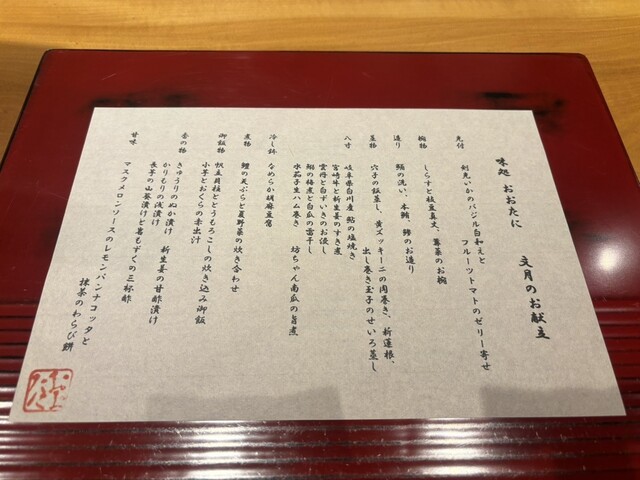 味処 おおたに 文月のお献立
先付 剣先いかのバジル白和えと
フルーツトマトのゼリー寄せ
椀物 しらすと枝豆真丈、蓴菜のお椀
造り 鱸の洗い、本鮪、鯵のお造り
蒸物 穴子の飯蒸し、黄ズッキーニの肉巻き、新蓮根、
出し巻き玉子のせいろ蒸し
八寸 岐阜県白川産 鮎の塩焼き
宮崎牛と新生姜のすき煮
雲丹と白ずいきのお浸し
鰯の梅煮と白瓜の雷干し
水茄子生ハム巻き 坊ちゃん南瓜の旨煮
冷し鉢 なめらか胡麻豆腐
煮物 鱧の天ぷらと夏野菜の炊き合わせ
御飯物 帆立貝柱ととうもろこしの炊き込み御飯
小芋とおくらの赤出汁
香の物 きゅうりのぬか漬け 新生姜の甘酢漬け
かりもりの浅漬け
長芋の山葵漬けと岩もずくの三杯酢
甘味 マスクメロンソースのレモンパンナコッタと
抹茶のわらび餅